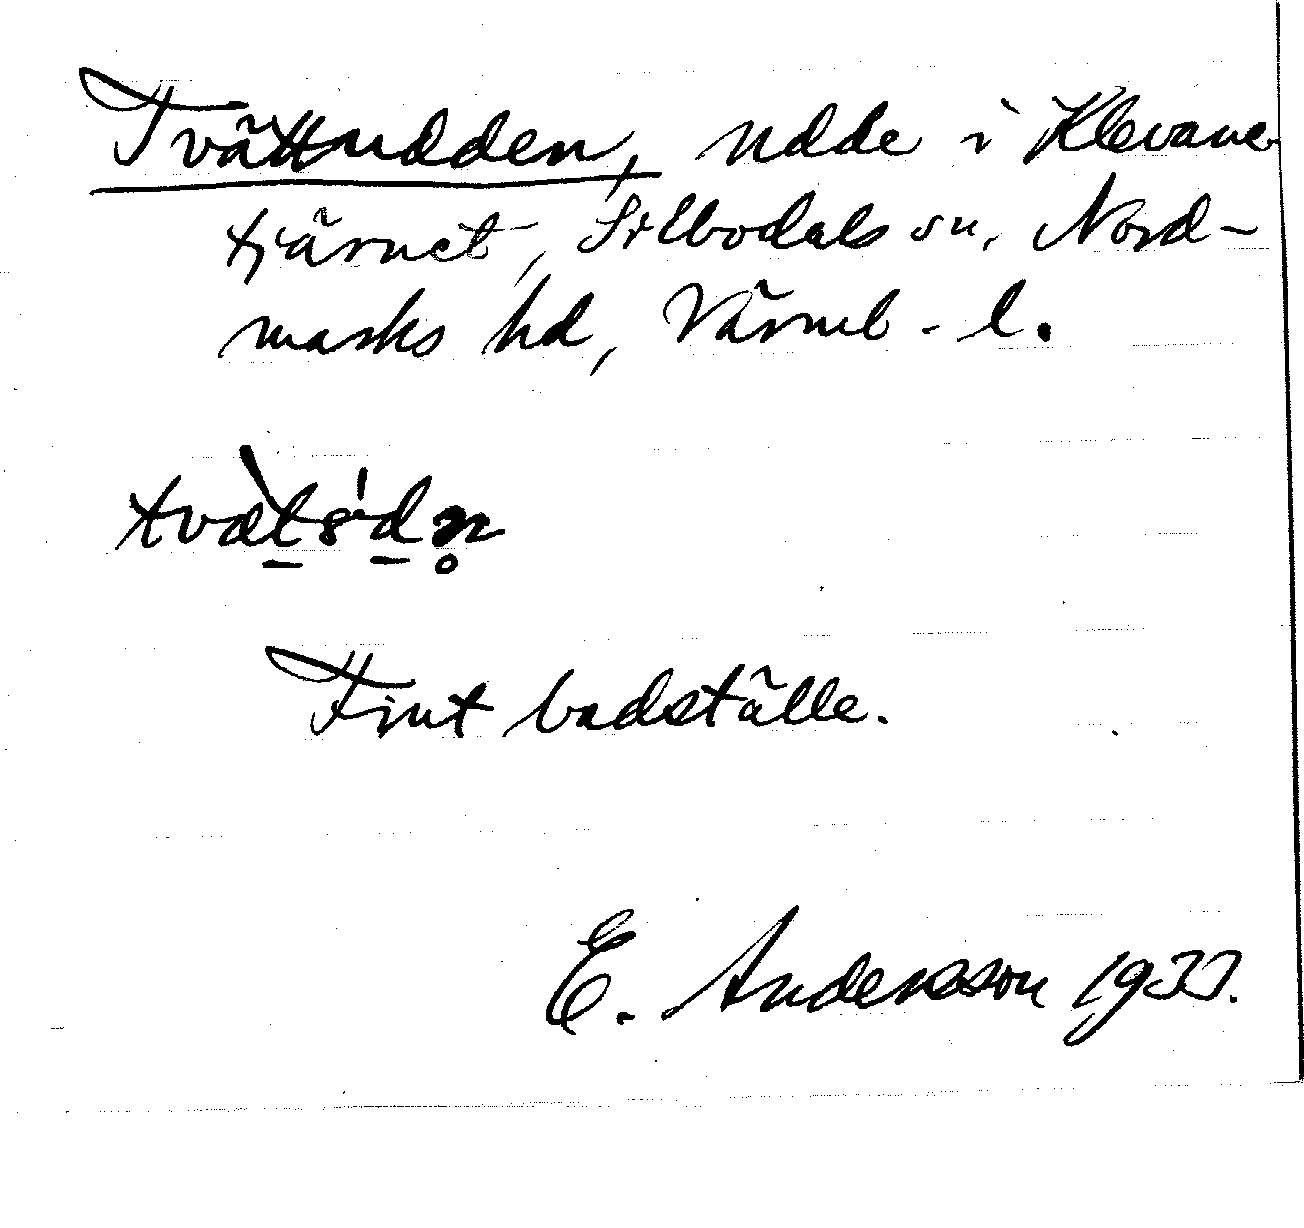 Tvättudden, udde i Klevane-
tjärnet, Silbodals sn, Nord-
marks hd, Värml. l.
Fint badställe.
E. Andersson 1933.